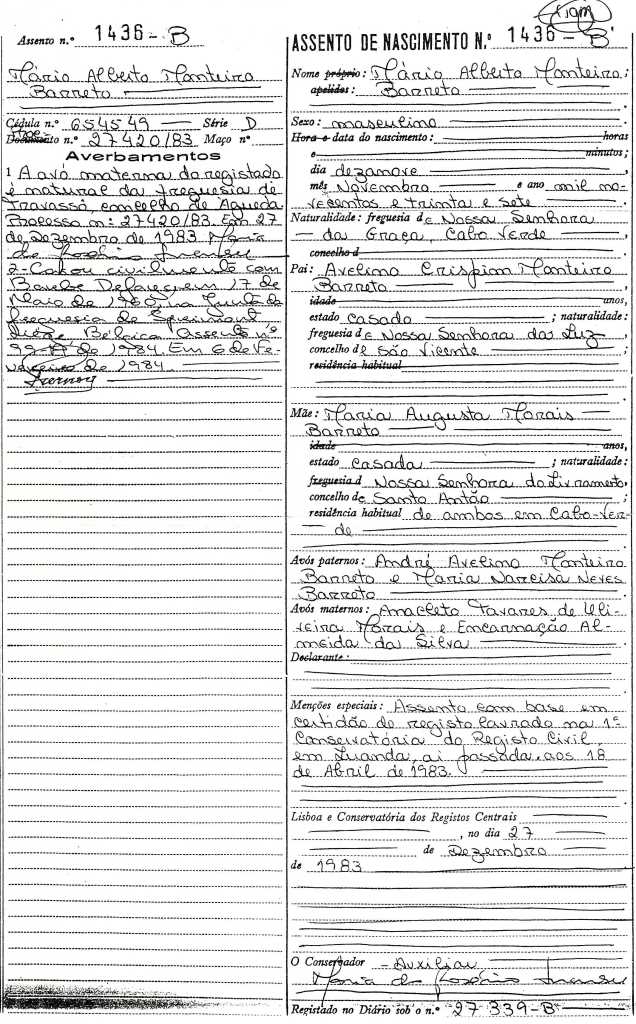 Assento n.º 1436-B
Mário Alberto Monteiro
Barreto
Cédula n.º 654549 Série D
Documento n.º 27420/83 Maço nº
Averbamentos
1 A avó materna do registado
é natural da freguesia de
Travassô, concelho de Agueda
Processo n: 27420/83. Em 27
de Dezembro de 1983 Maria
do Rosário
2- Casou civilmente com
em 17 de
Maio de na Junta de
freguesia de
Bélgica. Assento nº
de 1984. Em 6 de Fe-
vereiro de 1984.
ASSENTO DE NASCIMENTO N.º 1436-B
Nome próprio: Mário Alberto Monteiro;
apelidos: Barreto
Sexo: masculino
Hora e data do nascimento: horas
e minutos;
dia dezanove
mês Novembro e ano mil no-
vecentos e trinta e sete
Naturalidade: freguesia de Nossa Senhora
da Graça, Cabo Verde
concelho d
Pai: Avelino Crispim Monteiro
Barreto
idade anos,
estado casado; naturalidade:
freguesia de Nossa Senhora da Luz,
concelho de São Vicente;
residência habitual
Mãe: Maria Augusta Morais
Barreto
idade anos,
estado casada; naturalidade:
freguesia d Nossa Senhora do Livramento,
concelho de Santo Antão;
residência habitual de ambos em Cabo-Ver-
de
Avós paternos: André Avelino Monteiro
Barreto e Maria Narcisa Neves
Barreto
Avós maternos: Anacleto Tavares de Oli-
veira Morais e Encarnação Al-
meida da Silva
Declarante:
Menções especiais: Assento com base em
certidão de registo lavrado na 1ª
Conservatória do Registo Civil
em Luanda, aí passada aos 18
de Abril de 1983.
Lisboa e Conservatória dos Registos Centrais
, no dia 27
de Dezembro
de 1983
O Conservador - Auxiliar
Maria do Rosário
Registado no Diário sob o n.º 27339-B